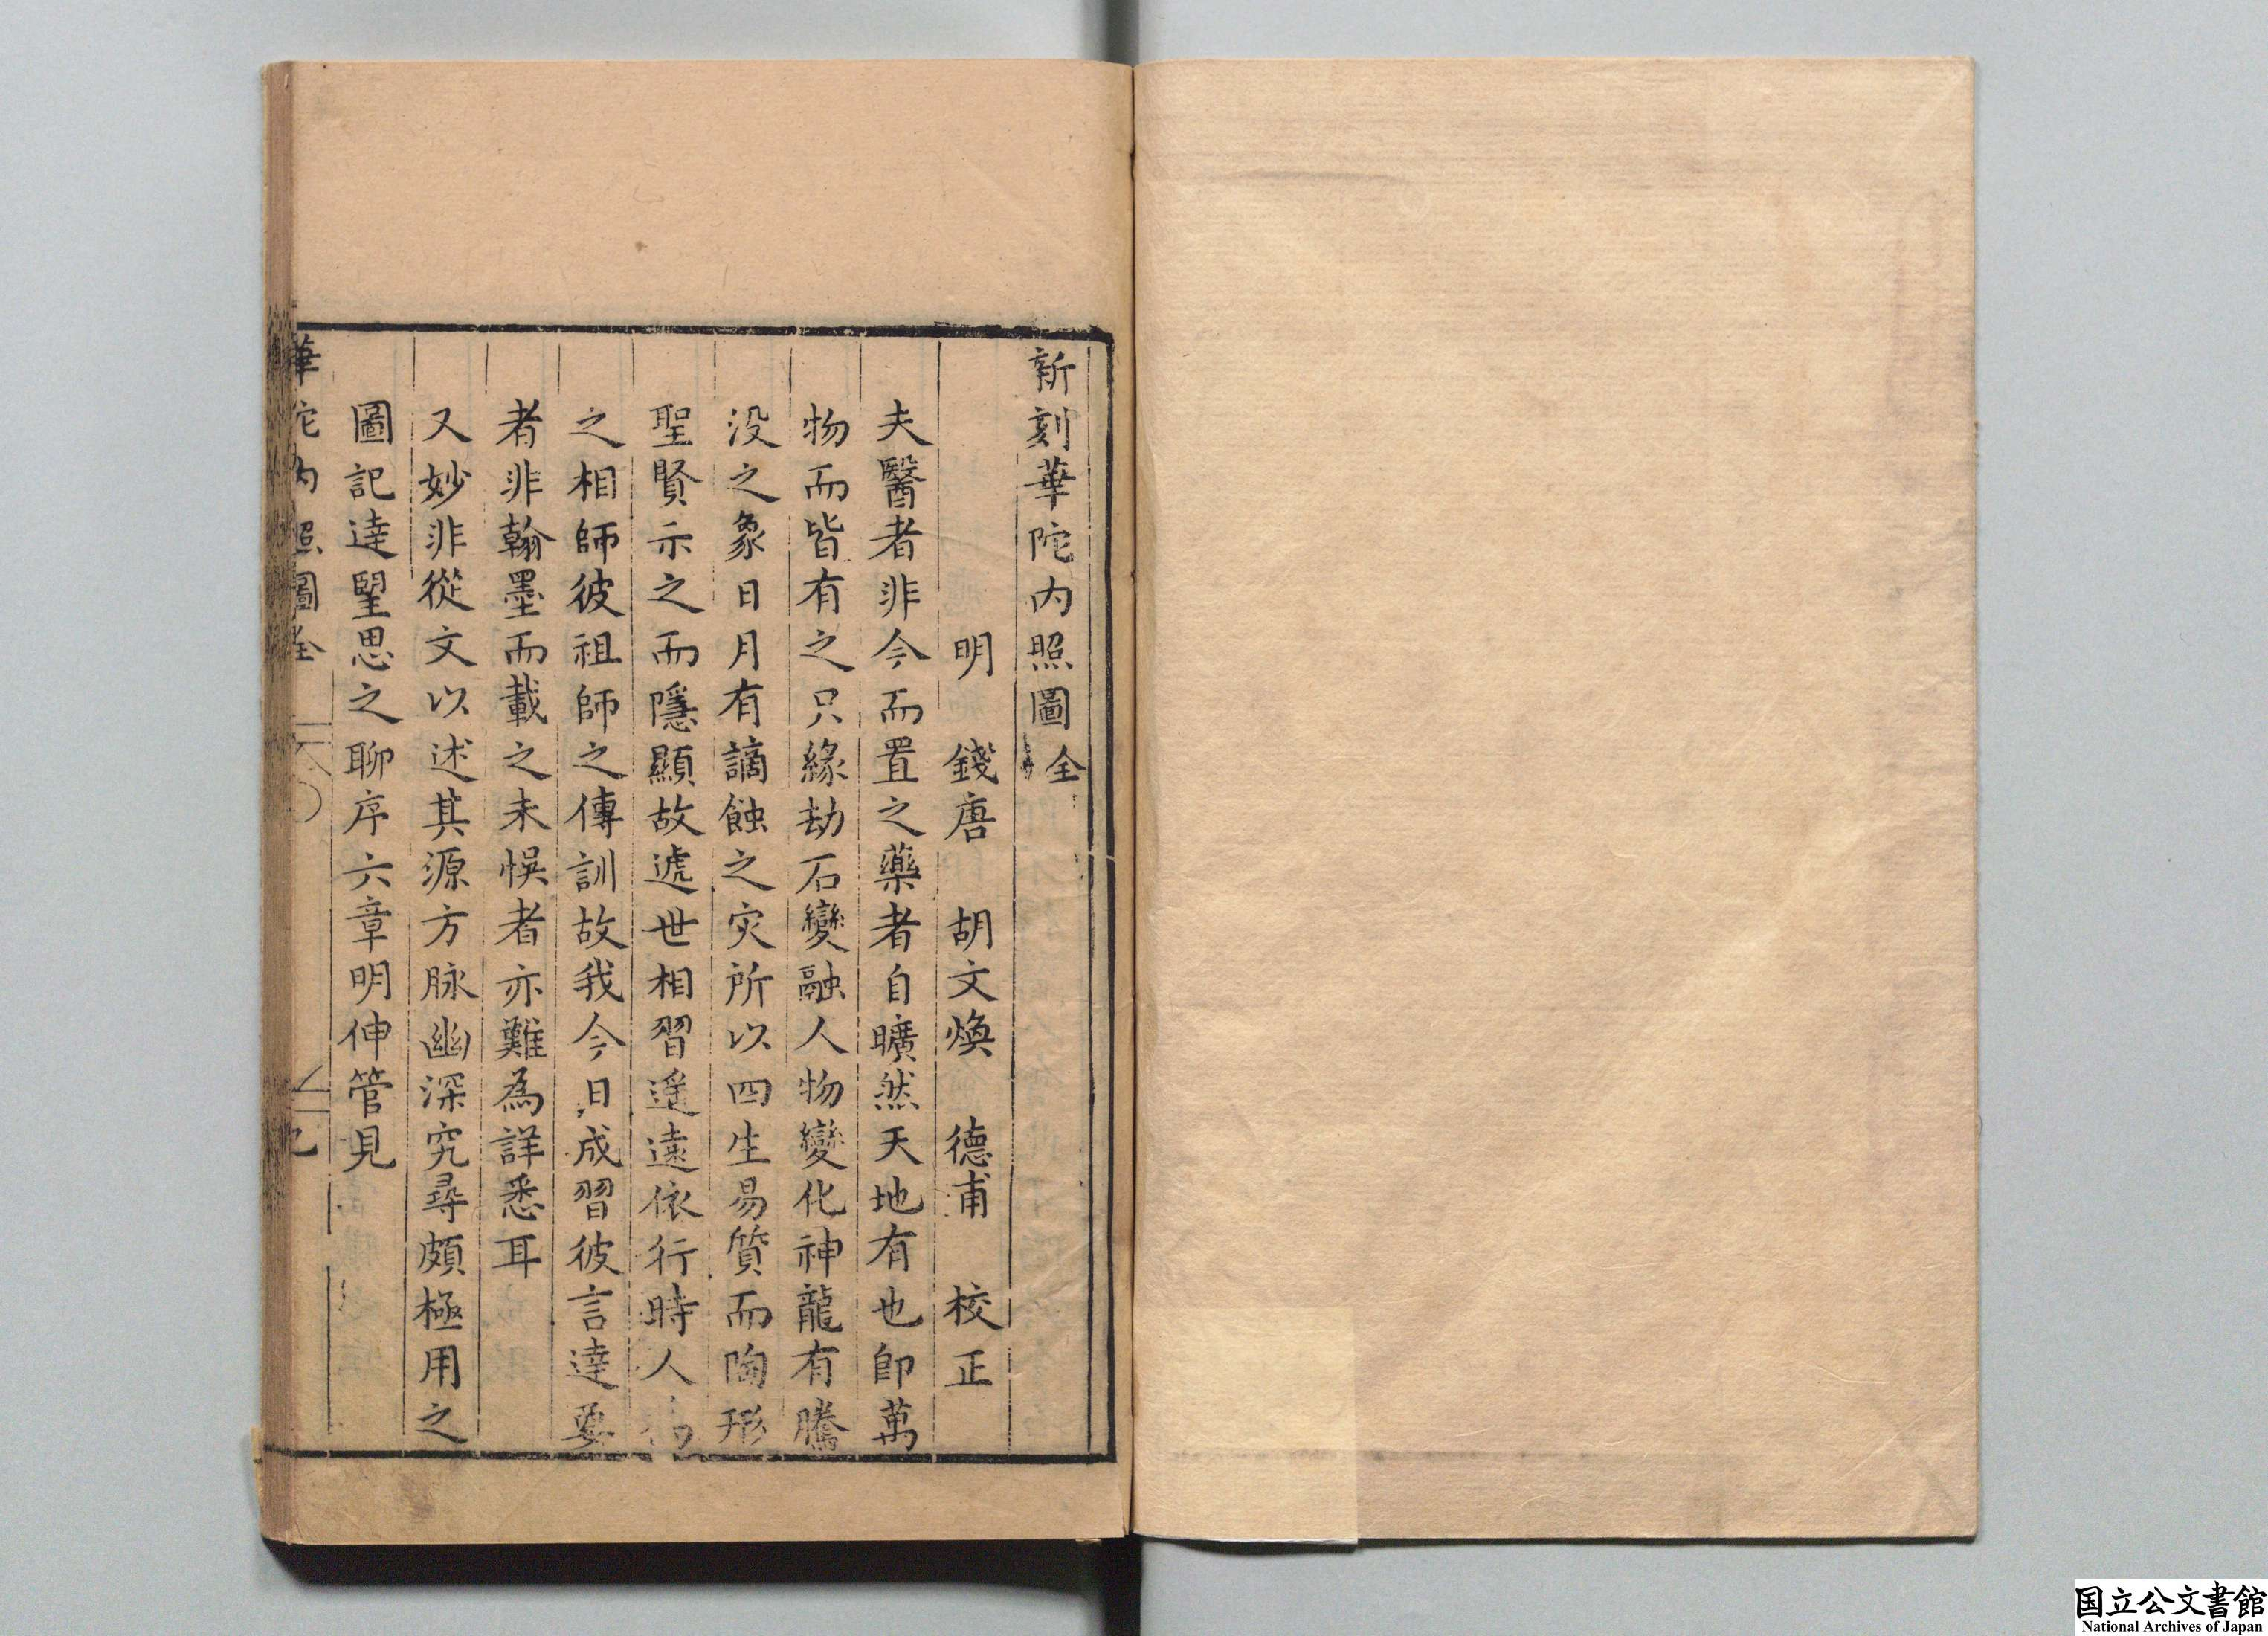 新刻華陀内照圖全
明　錢唐　胡文煥　德甫　校正
夫醫者非今而置之藥者自曠然天地有也卽萬
物而皆有之只緣劫石變融人物變化神龍有騰
没之象日月有謫蝕之灾所以四生易質而陶形
聖賢示之而隱顯故遞世相習遥遠依行時人
之相師彼祖師之傳訓故我今日成習彼言達要
者非翰墨而載之未悞者亦難為詳悉耳
又妙非從文以述其源方脉幽深究尋頗極用之
圖記達聖思之聊序六章明伸管見
華佗内照圖全
国立公文書館
National Archives of Japan